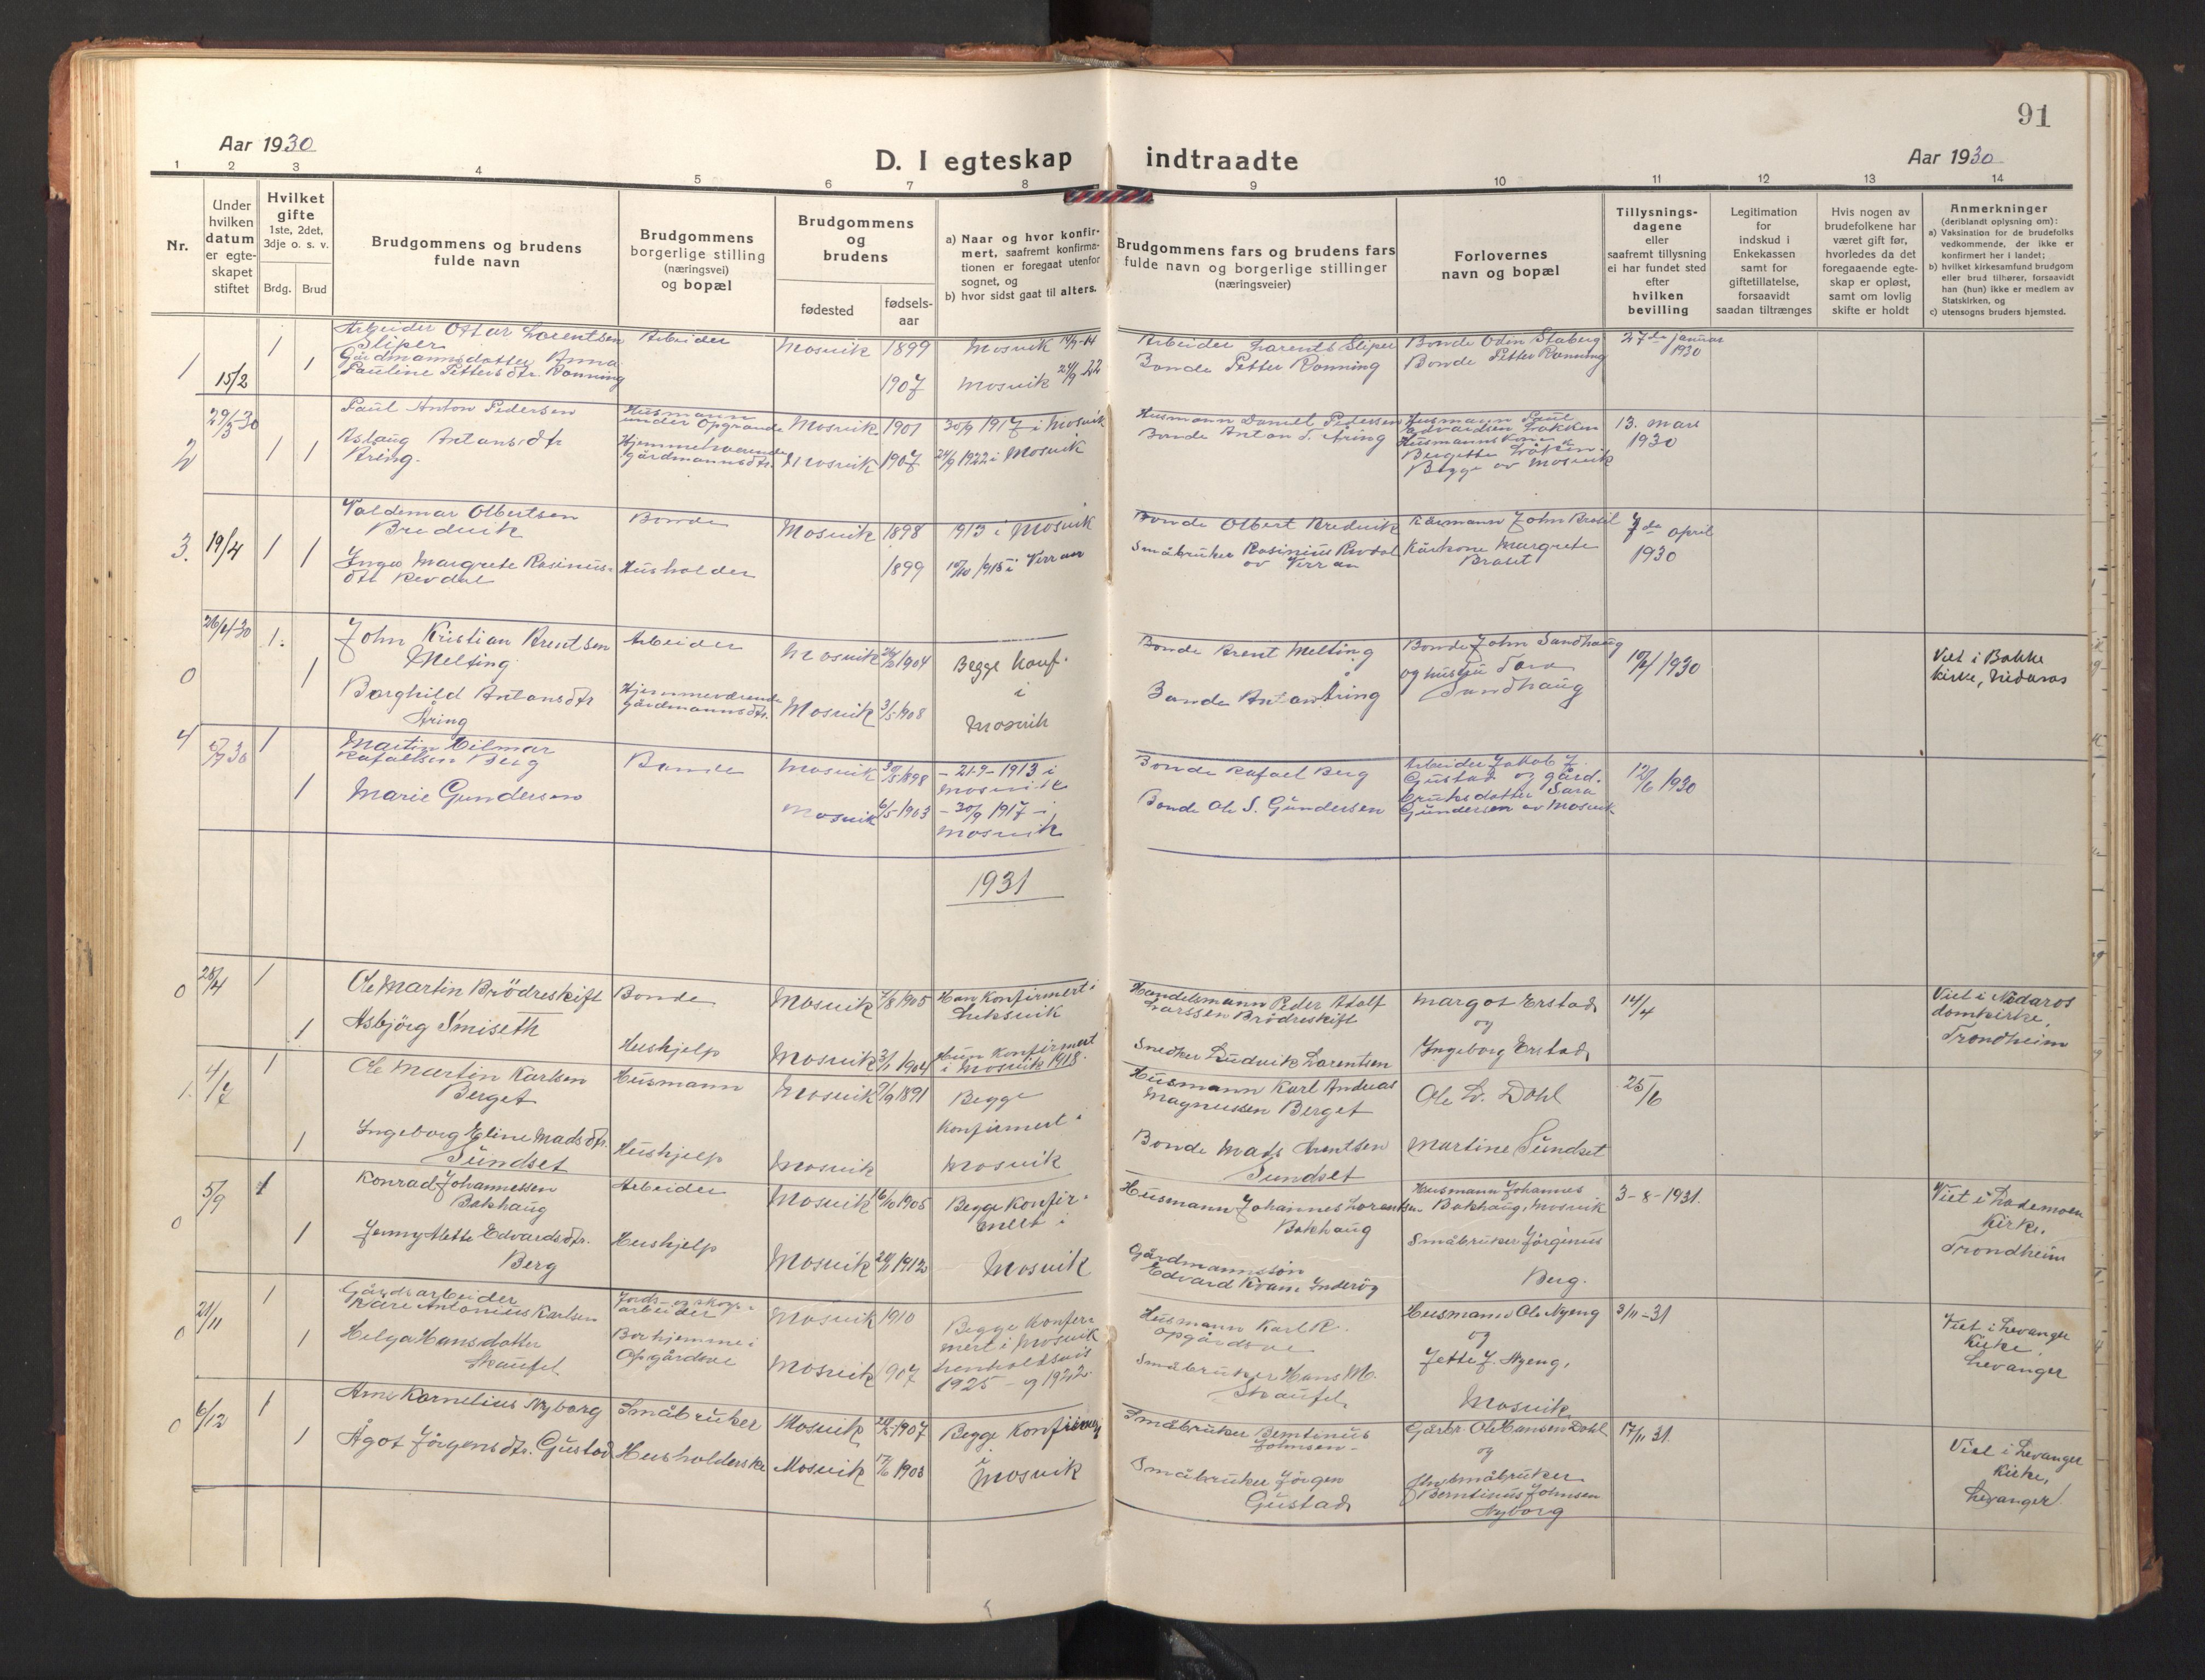 91
Aar 1930
D. I egteskap indtraadte
Aar 1930
1 2 3 4 5 6 7 8 9 10 11 12 13 14
Nr.
Under
hvilken
datum
er egte-
skapet
stiftet
Hvilket
gifte
1ste, 2det,
3dje o. s. v.
Brdg. Brud
Brudgommens og brudens
fulde navn
Brudgommens
borgerlige stilling
(næringsvei)
og bopæl
Brudgommens
og
brudens
fødested
fødsels-
aar
a) Naar og hvor konfir-
mert, saafremt konfirma-
tionen er foregaat utenfor
sognet, og
b) hvor sidst gaat til alters.
Brudgommens fars og brudens fars
fulde navn og borgerlige stillinger
(næringsveier)
Forlovernes
navn og bopæl
Tillysnings-
dagene
eller
saafremt tillysning
ei har fundet sted
efter
hvilken
bevilling
Legitimation
for
indskud i
Enkekassen
samt for
giftetillatelse,
forsaavidt
saadan tiltrænges
Hvis nogen av
brudefolkene har
været gift før,
hvorledes da det
foregaaende egte-
skap er opløst,
samt om lovlig
skifte er holdt
Anmerkninger
(deriblandt oplysning om):
a) Vaksination for de brudefolks
vedkommende, der ikke er
konfirmert her i landet;
b) hvilket kirkesamfund brudgom
eller brud tilhører, forsaavidt
han (hun) ikke er medlem av
Statskirken, og
c) utensogns bruders hjemsted.
1
15/2
1
1
Arbeider Ottar Lorentsen
Sliper
Gårdmannsdatter Anna
Pauline Pettersdtr. Rønning
Arbeider
Mosvik 1899
1907
Mosvik
Mosvik 24/9 22
Arbeider Lorents Sliper
Bonde Petter Rønning
Bonde Odin Staberg
Bonde Petter Rønning
27de januar
1930
2
29/3-30
1 1
Paul Anton Pedersen
Aslaug Antonsdtr
Aring.
Husmann
under Opgrande
Hjemmeværende
gårdmannsdtr.
Mosvik 1901
Mosvik 1907
30/9 1917 i Mosvik
24/9 1922 i Mosvik
Husmann Daniel Pedersen
Bonde Anton T. Åring
Husmann Paul
Edvardsen Løkken
Husmannskone
Bergitte Løkken
Begge av Mosvik
13. mars
1930
3.
19/4
1 1
Valdemar Olbertsen
Bredvik
Inga Margrete Rasinus-
dtr Revdal
Bonde
Husholder
Mosvik 1898
1899
1913 i Mosvik
10/10 1915 i Verran
Bonde Olbert Bredvik
Småbruker Rasinius Revdal
av Verran
Kårmann John Braset
Kårkone Margrete
Braset
7de april
1930
0
26/4-30
1.
1
John Kristian Arentsen
Melting
Borghild Antonsdtr
Åring
Arbeider
Hjemmeværende
Gårdmannsdtr.
Mosvik 1904
Mosvik 3/5 1908
Begge konf.
i
Mosvik
Bonde Arent Melting
Bonde Anton Åring
Bonde John Sandhaug
og hustru Sara
Sandhaug
10/4 1930
Viet i Bakke
kirke, Nidaros
4
1
1
Martin Hilmar
Rafaelsen Berg
Marie Gundersen
Bonde
Mosvik 1898
Mosvik 6/5 1903
- 21-9-1913 i
Mosvik
- 30/9 1917 - i
Mosvik
Bonde Rafael Berg
Bonde Ole S. Gundersen
Arbeider Jakob J.
Gustad og gård-
brukerdatter Sara
Gundersen av Mosvik
12/6 1930
1931
0
28/4
1
1
Ole Martin Brødreskift
Asbjørg Smiseth
Bonde
Hushjelp
Mosvik 7/8 1905
Mosvik 3/1 1904
Han konfirmert i
Leksvik
Hun konfirmert
i Mosvik 1918.
Handelsmann Peder Adolf
Larssen Brødreskift
Snedker Ludvik Larentsen
Margot Erstad
og
Ingeborg Erstad
14/4
Viet i Nidaros
domkirke,
Trondheim
1.
4/7
1
1
Ole Martin Karlsen
Berget
Ingeborg Neline Madsdtr.
Sundset
Husmann
Hushjelp
Mosvik 1891
Mosvik
Begge
konfirmert i
Mosvik
Husmann Karl Andreas
Magnussen Berget
Bonde Mads Arentsen
Sundset
Ole L. Dahl
Martine Sundset
25/6
0
5/9
1
1
Konrad Johannessen
Bakhaug
Jenny Alette Edvardsdtr.
Berg
Arbeider
Hushjelp
Mosvik 6/10 1905
Mosvik 1912
Begge konfir-
mert i
Mosvik
Husmann Johannes Lorentsen
Bakhaug
Gårdmannssøn
Edvard Kvam Inderøy
Husmann Johannes
Bakhaug, Mosvik
Småbruker Jørginus
Berg.
3-8-1931.
Viet i Lademoen
Kirke,
Trondheim
0
21/11
1
1
Gårdsarbeider
Kåre Antonius Karlsen
Helga Hansdatter
Skaufel
Jords- og skogs-
arbeider
Bor hjemme i
Opgårdsve
Mosvik 1910
Mosvik 907
Begge konfir-
mert i Mosvik
henholdsvis
1925 - og 1922.
Husmann Karl R.
Opgårdsve
Småbruker Hans M.
Skaufel
Husmann Ole Nyeng
og
Jette J. Nyeng,
Mosvik
3/11-31
Viet i Levanger
Kirke,
Levanger
0
6/12
1
1
Arne Kornelius Nyborg
Ågot Jørgensdtr. Gustad
Småbruker
Husholderske
Mosvik 1907
Mosvik 1903
Begge konfirmert
i
Mosvik
Småbruker Berntinus
Johnsen -
Småbruker Jørgen
Gustad
Gårbr. Ole Hansen Dahl
og
Småbruker
Berntinus Johnsen
Nyborg
17/11 31.
Viet i Levanger
Kirke,
Levanger.